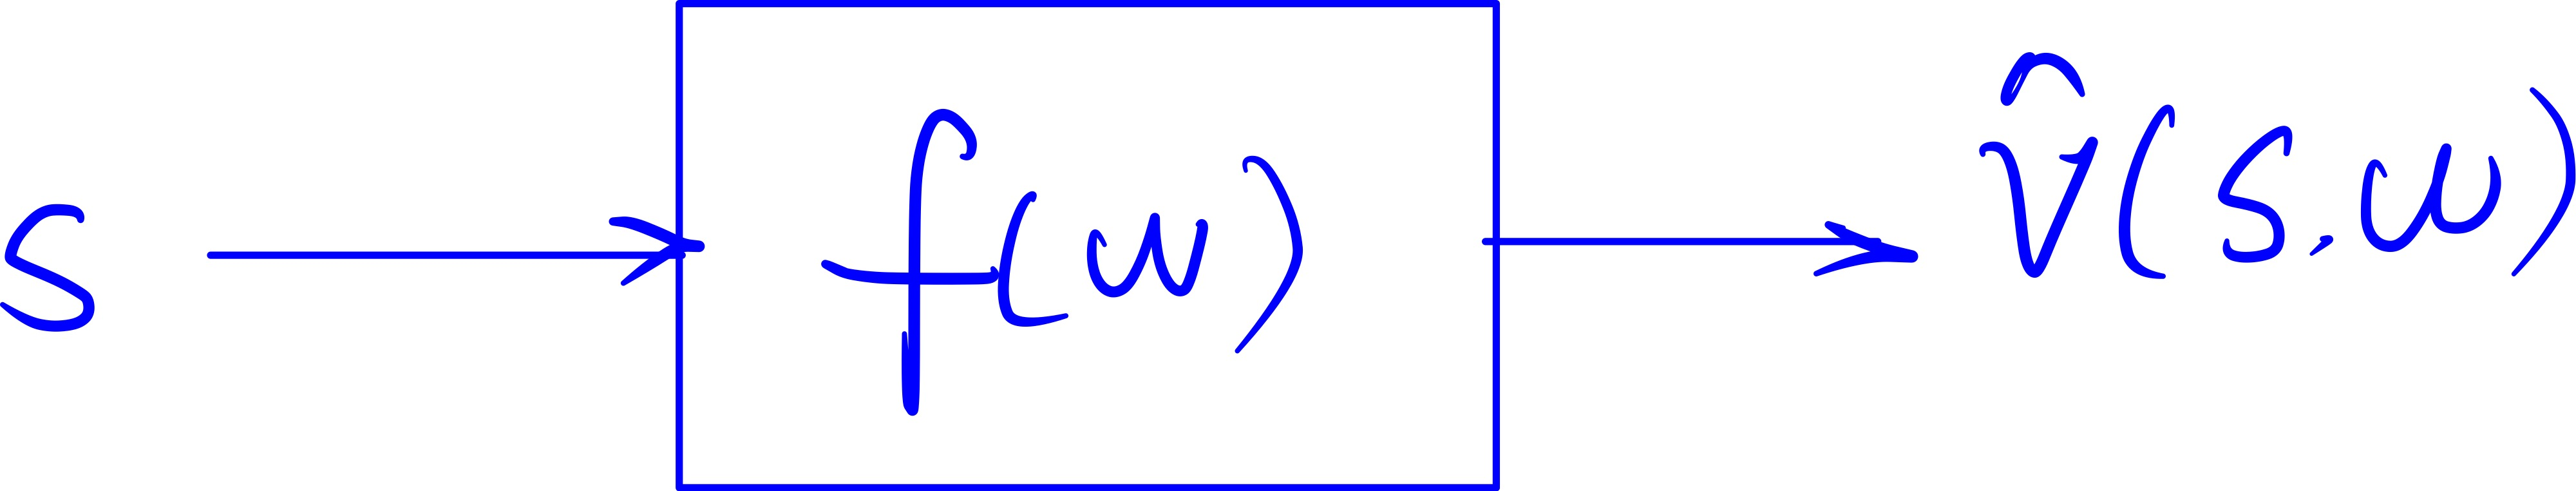 S f(w) v̂(s,w)